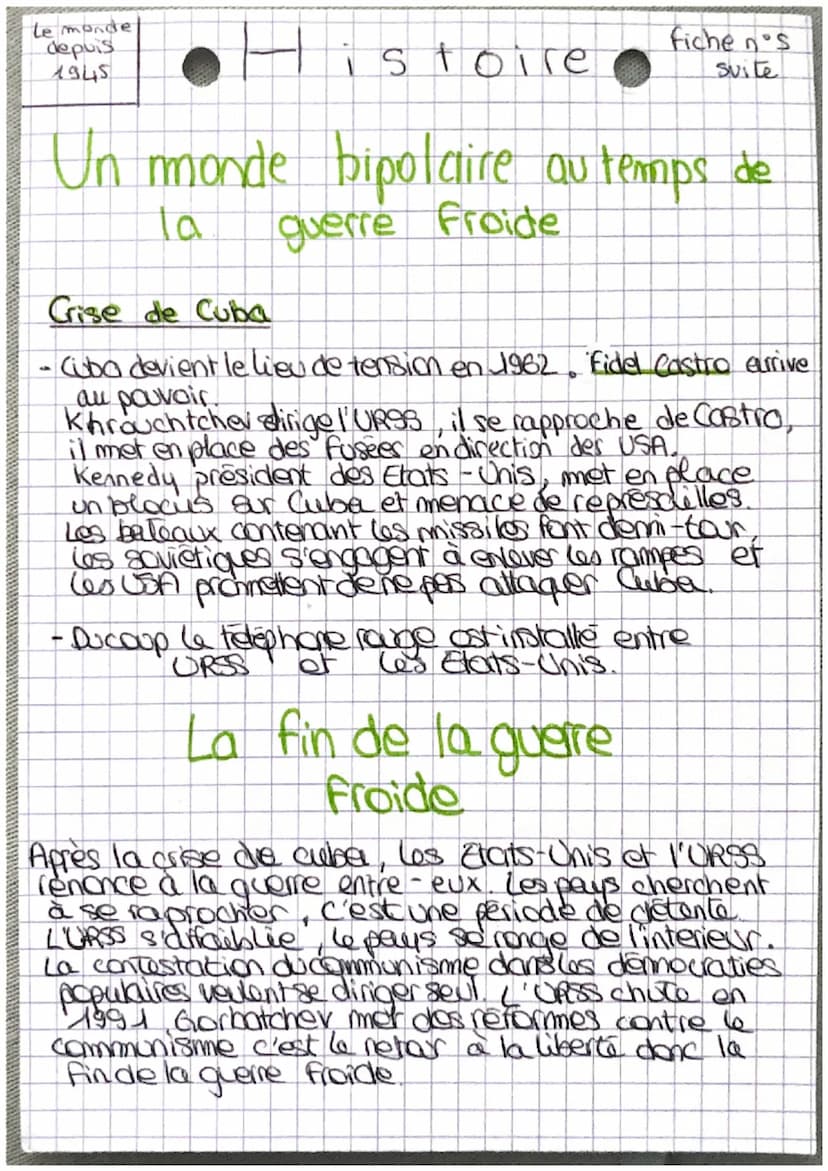 Le monde
depuis
1945
Histoire
fiche n°5
suite
Un monde bipolaire au temps de
la guerre froide
Crise de Cuba
- Cuba devient le lieu de tension en 1962. Fidel Castro arrive
au pouvoir.
Khrouchtchev dirige l'URSS, il se rapproche de Castro,
il met en place des fusées en direction des USA.
Kennedy président des Etats-Unis, met en place
un blocus sur Cuba et menace de représailles.
Les bateaux contenant les missiles font demi-tour,
les soviétiques s'engagent à enlever les rampes et
les USA promettent de ne pas attaquer Cuba.
- Ducoup le téléphone rouge est installé entre
URSS et les Etats-Unis.
La fin de la guerre
froide
Après la crise de cuba, les Etats-Unis et l'URSS
renonce à la guerre entre-eux. Les pays cherchent
à se raprocher, c'est une période de détente.
L'URSS s'affaiblie, le pays se ronge de l'interieur.
La contestation du communisme dans les démocraties
populaires veulent se diriger seul. L'URSS chute en
1991, Gorbatchev met des réformes contre le
communisme c'est le retour à la liberté donc la
fin de la guerre froide.